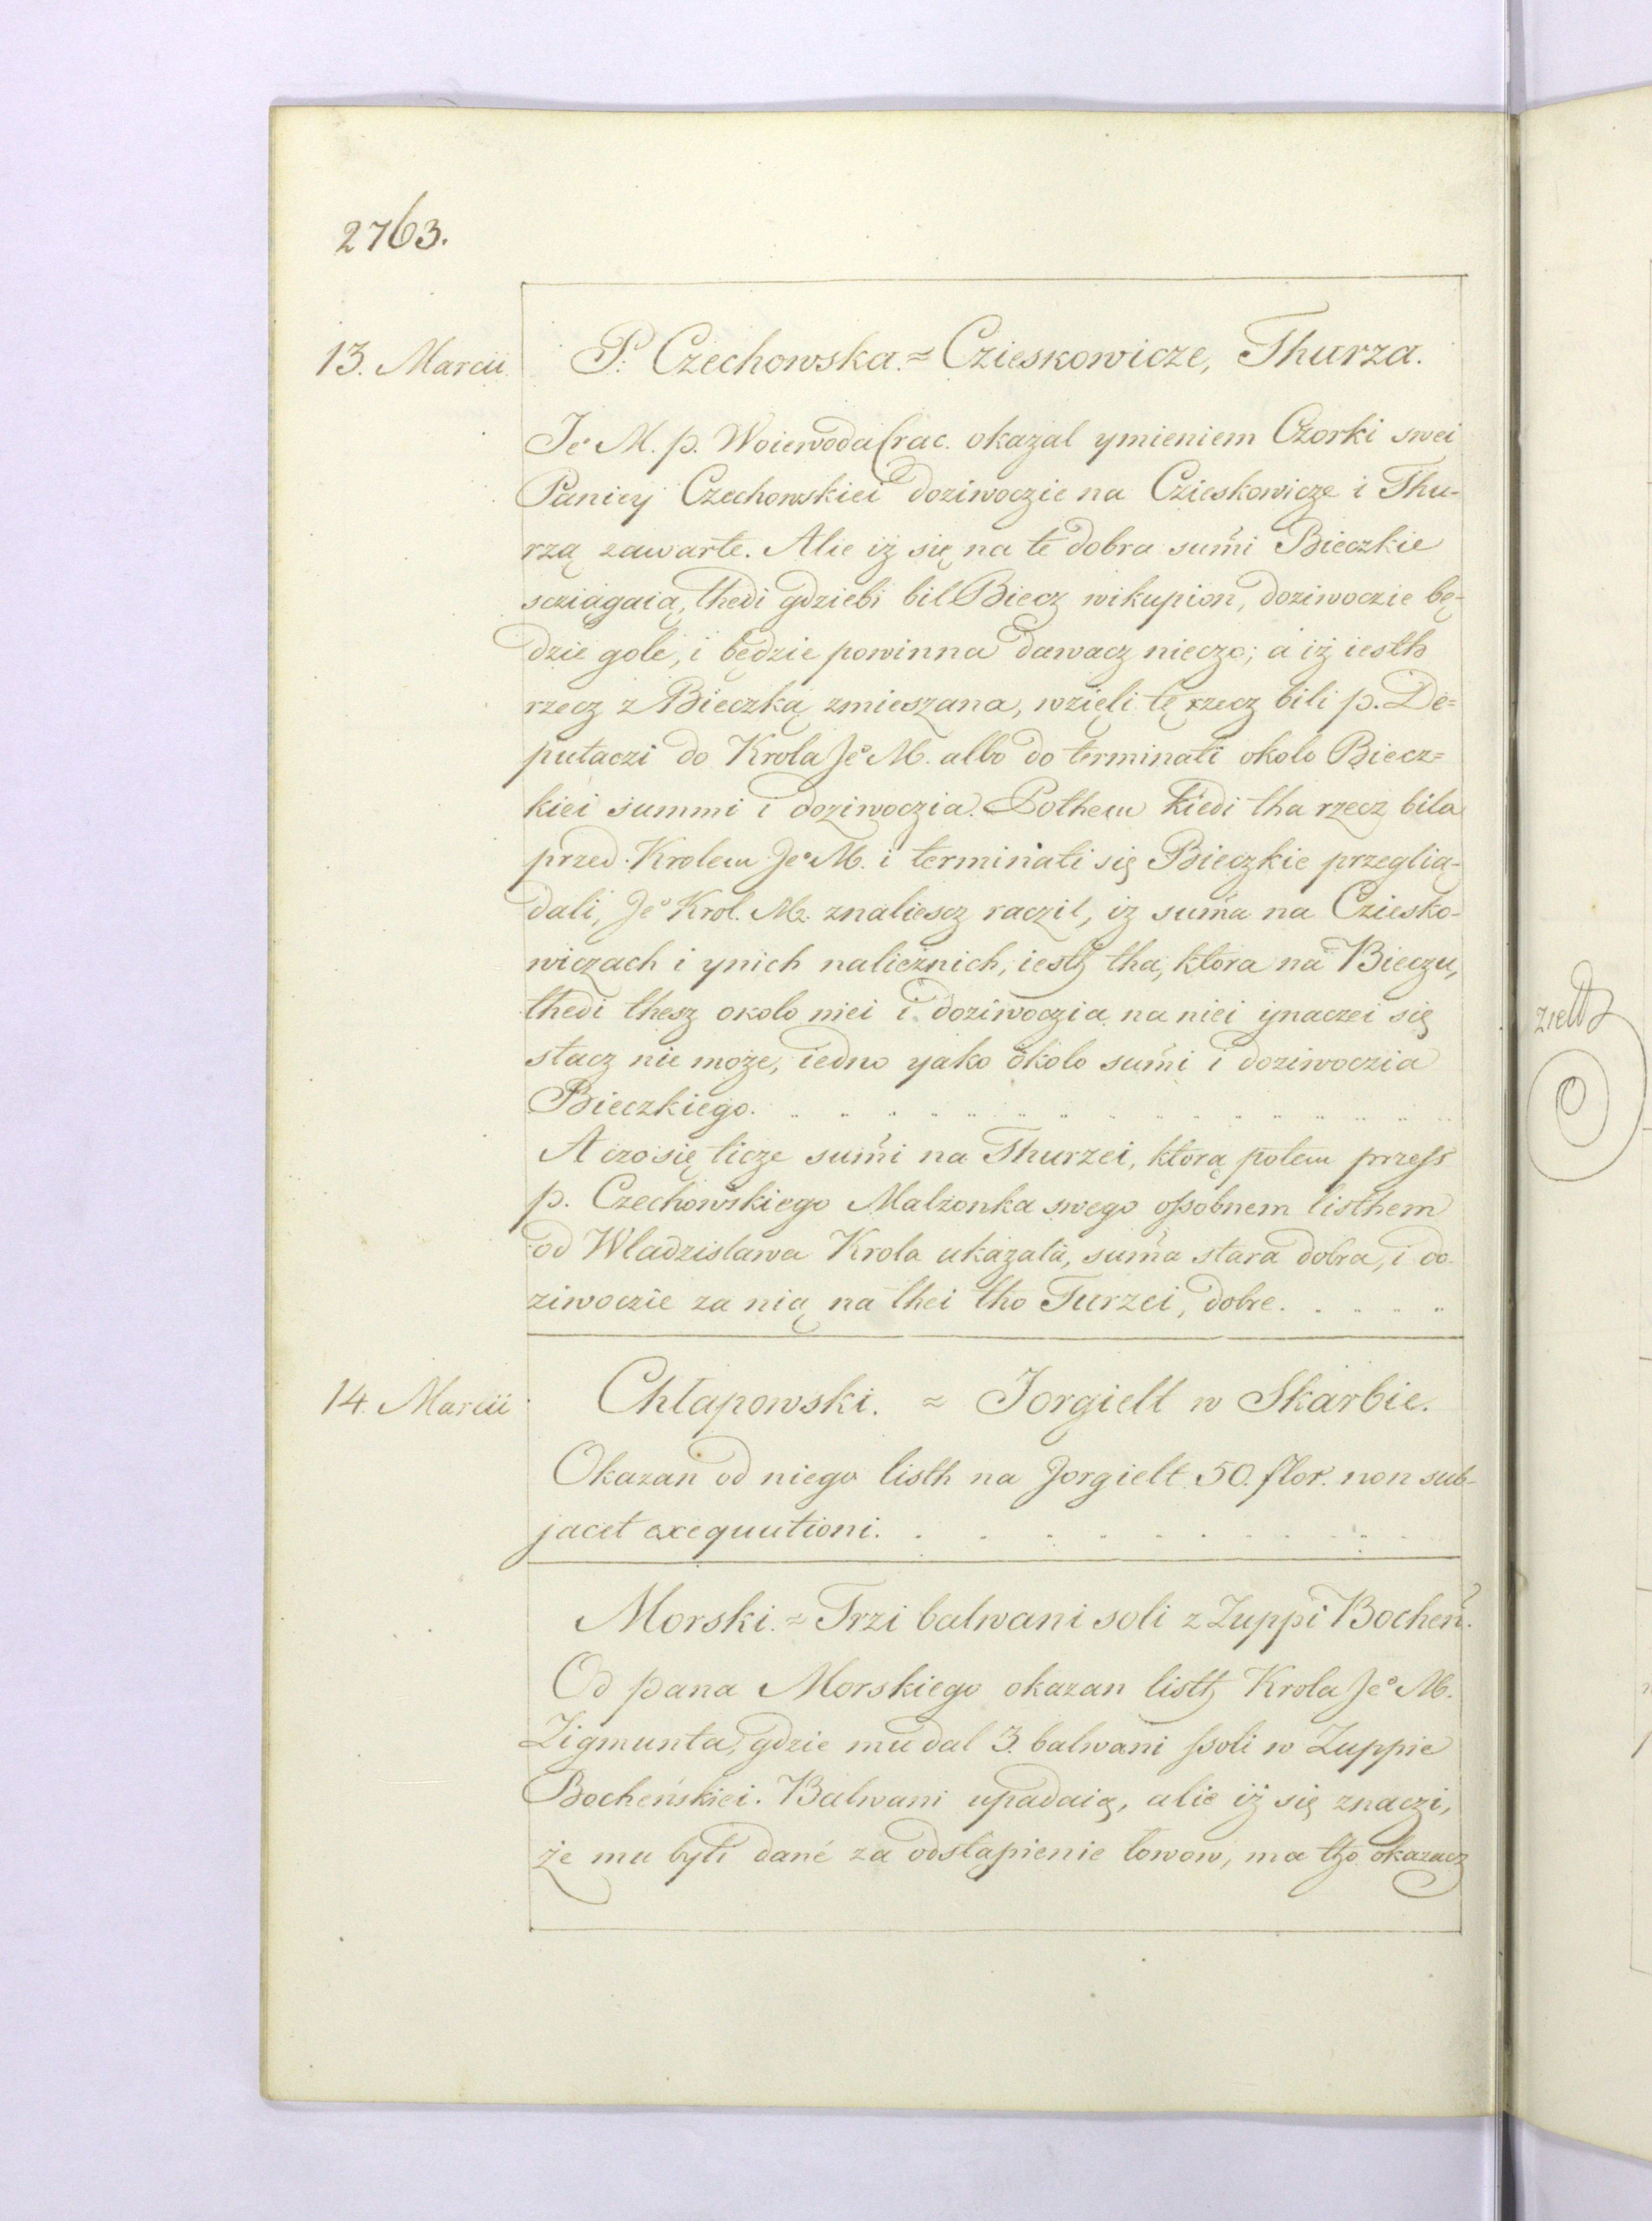 2763.
13. Marcii
P. Czechowska. = Czieskowicze, Thurza.
Je° M. p. Woiewoda Crac. okazal ymieniem Czorki swei
Paniey Czechowskiei doziwoczie na Czieskowicze i Thu-
rzą zawarte. Alie iż się na te dobra sum̃i Bieczkie
scziągaią, thedi gdziebi bil Biecz wikupion, doziwoczie bę-
dzie gole, i będzie powinna dawacz nieczo; a iż iesth
rzecz z Bieczką zmieszana, wzięli tę rzecz bili p. De=
putaczi do Krola Je° M. albo do terminati okolo Biecz=
kiei summi i doziwoczia. Pothem kiedi tha rzecz bila
przed Krolem Je° M. i terminati się Bieczkie przeglią-
dali, Je° Krol. M. znaliescz raczil, iz sum̃a na Cziesko-
wiczach i ynich naliežnich, iesth tha, ktora na Bieczu,
thedi thesz okolo niei i doziwoczia na niei ynaczei się
stacz nie może, iedno yako okolo sum̃i i doziwoczia
Bieczkiego.
A czo się licze sum̃i na Thurzei, ktorą potem przess
p. Czechowskiego Malzonka swego ossobnem listhem
od Wladzislawa Krola ukazala, sum̃a stara dobra, i do-
ziwoczie za nią na thei tho Turzei, dobre.
14. Marcii
Chłapowski. = Jorgielt w Skarbie.
Okazan od niego listh na Jorgielt 50. flor. non sub-
jacet exequutioni.
Morski. = Trzi balwani soli z Zuppi Bocheń.
Od pana Morskiego okazan listh Krola Je° M.
Zigmunta, gdzie mu dal 3. balwani ssoli w Zuppie
Bocheńskiei. Balwani upadaią, alie iż się znaczi,
że mu byli dane za odstąpienie łowow, ma tho okazacz